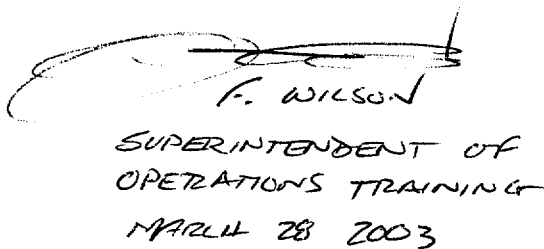 F. WILSON
SUPERINTENDENT OF
OPERATIONS TRAINING
MARCH 28 2003